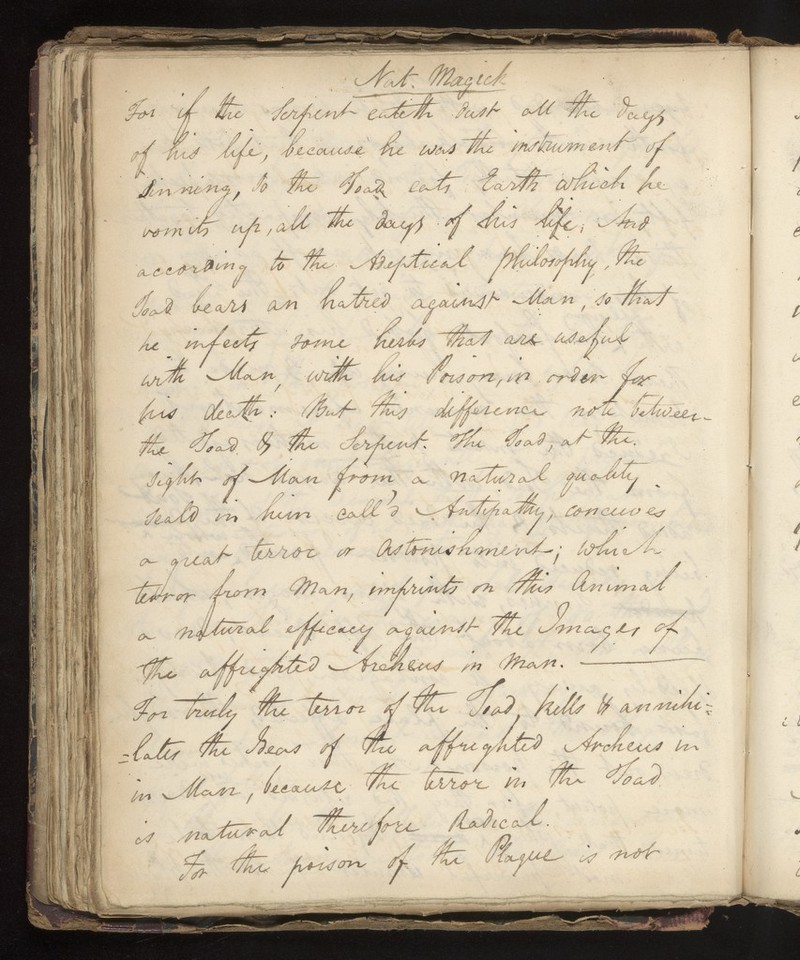 Nat. Magick
For if the Serpent eateth dust all the days
of his life, because he was the instrument of
sinning, So the Toad eats Earth which he
vomits up, all the days of his life; And
according to the Adeptical philosophy, the
Toad bears an hatred against Man, so that
he infects some herbs that are useful
with Man, with his Poison, in order for
his death: But this difference note between
the Toad & the Serpent. The Toad, at the
sight of Man from a natural quality
seald in him call'd Antipathy, conceives
a great terror or astonishment; which
terror from Man, imprints on this Animal
a natural efficacy against the Images of
the affrighted Archeus in man. —
For truly the terror of the Toad, kills & annihi=
=lates the Ideas of the affrighted Archeus in
in Man, because the terror in the Toad
is natural therefore Radical.
For the poison of the Plague is not